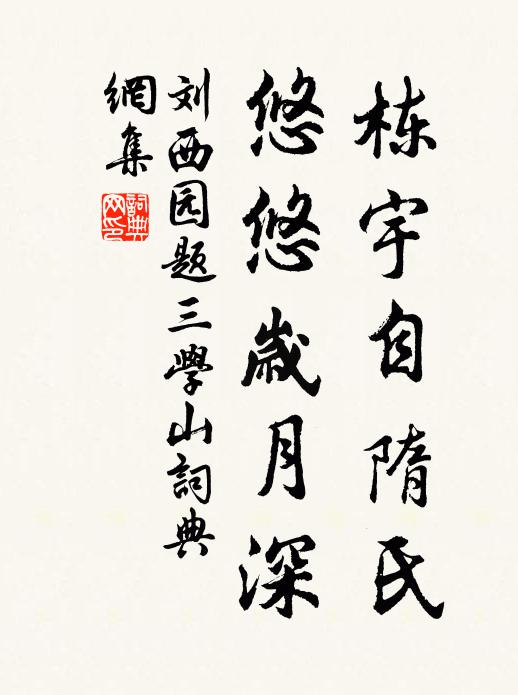 栋宇自隋氏
悠悠歲月深
刘西园题三學山詞典
網集
詞典
网印